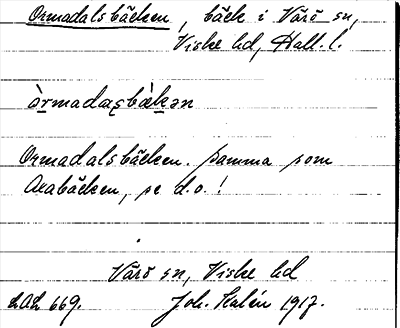 Ormadalsbäcken, bäck i Värö sn,
Viske hd, Hall. l.
òrmadaʂbàkən
Ormadalsbäcken. Samma som
Arabäcken, se d.o.!
Värö sn, Viske hd
LAL 669. Joh. Kalén 1917.